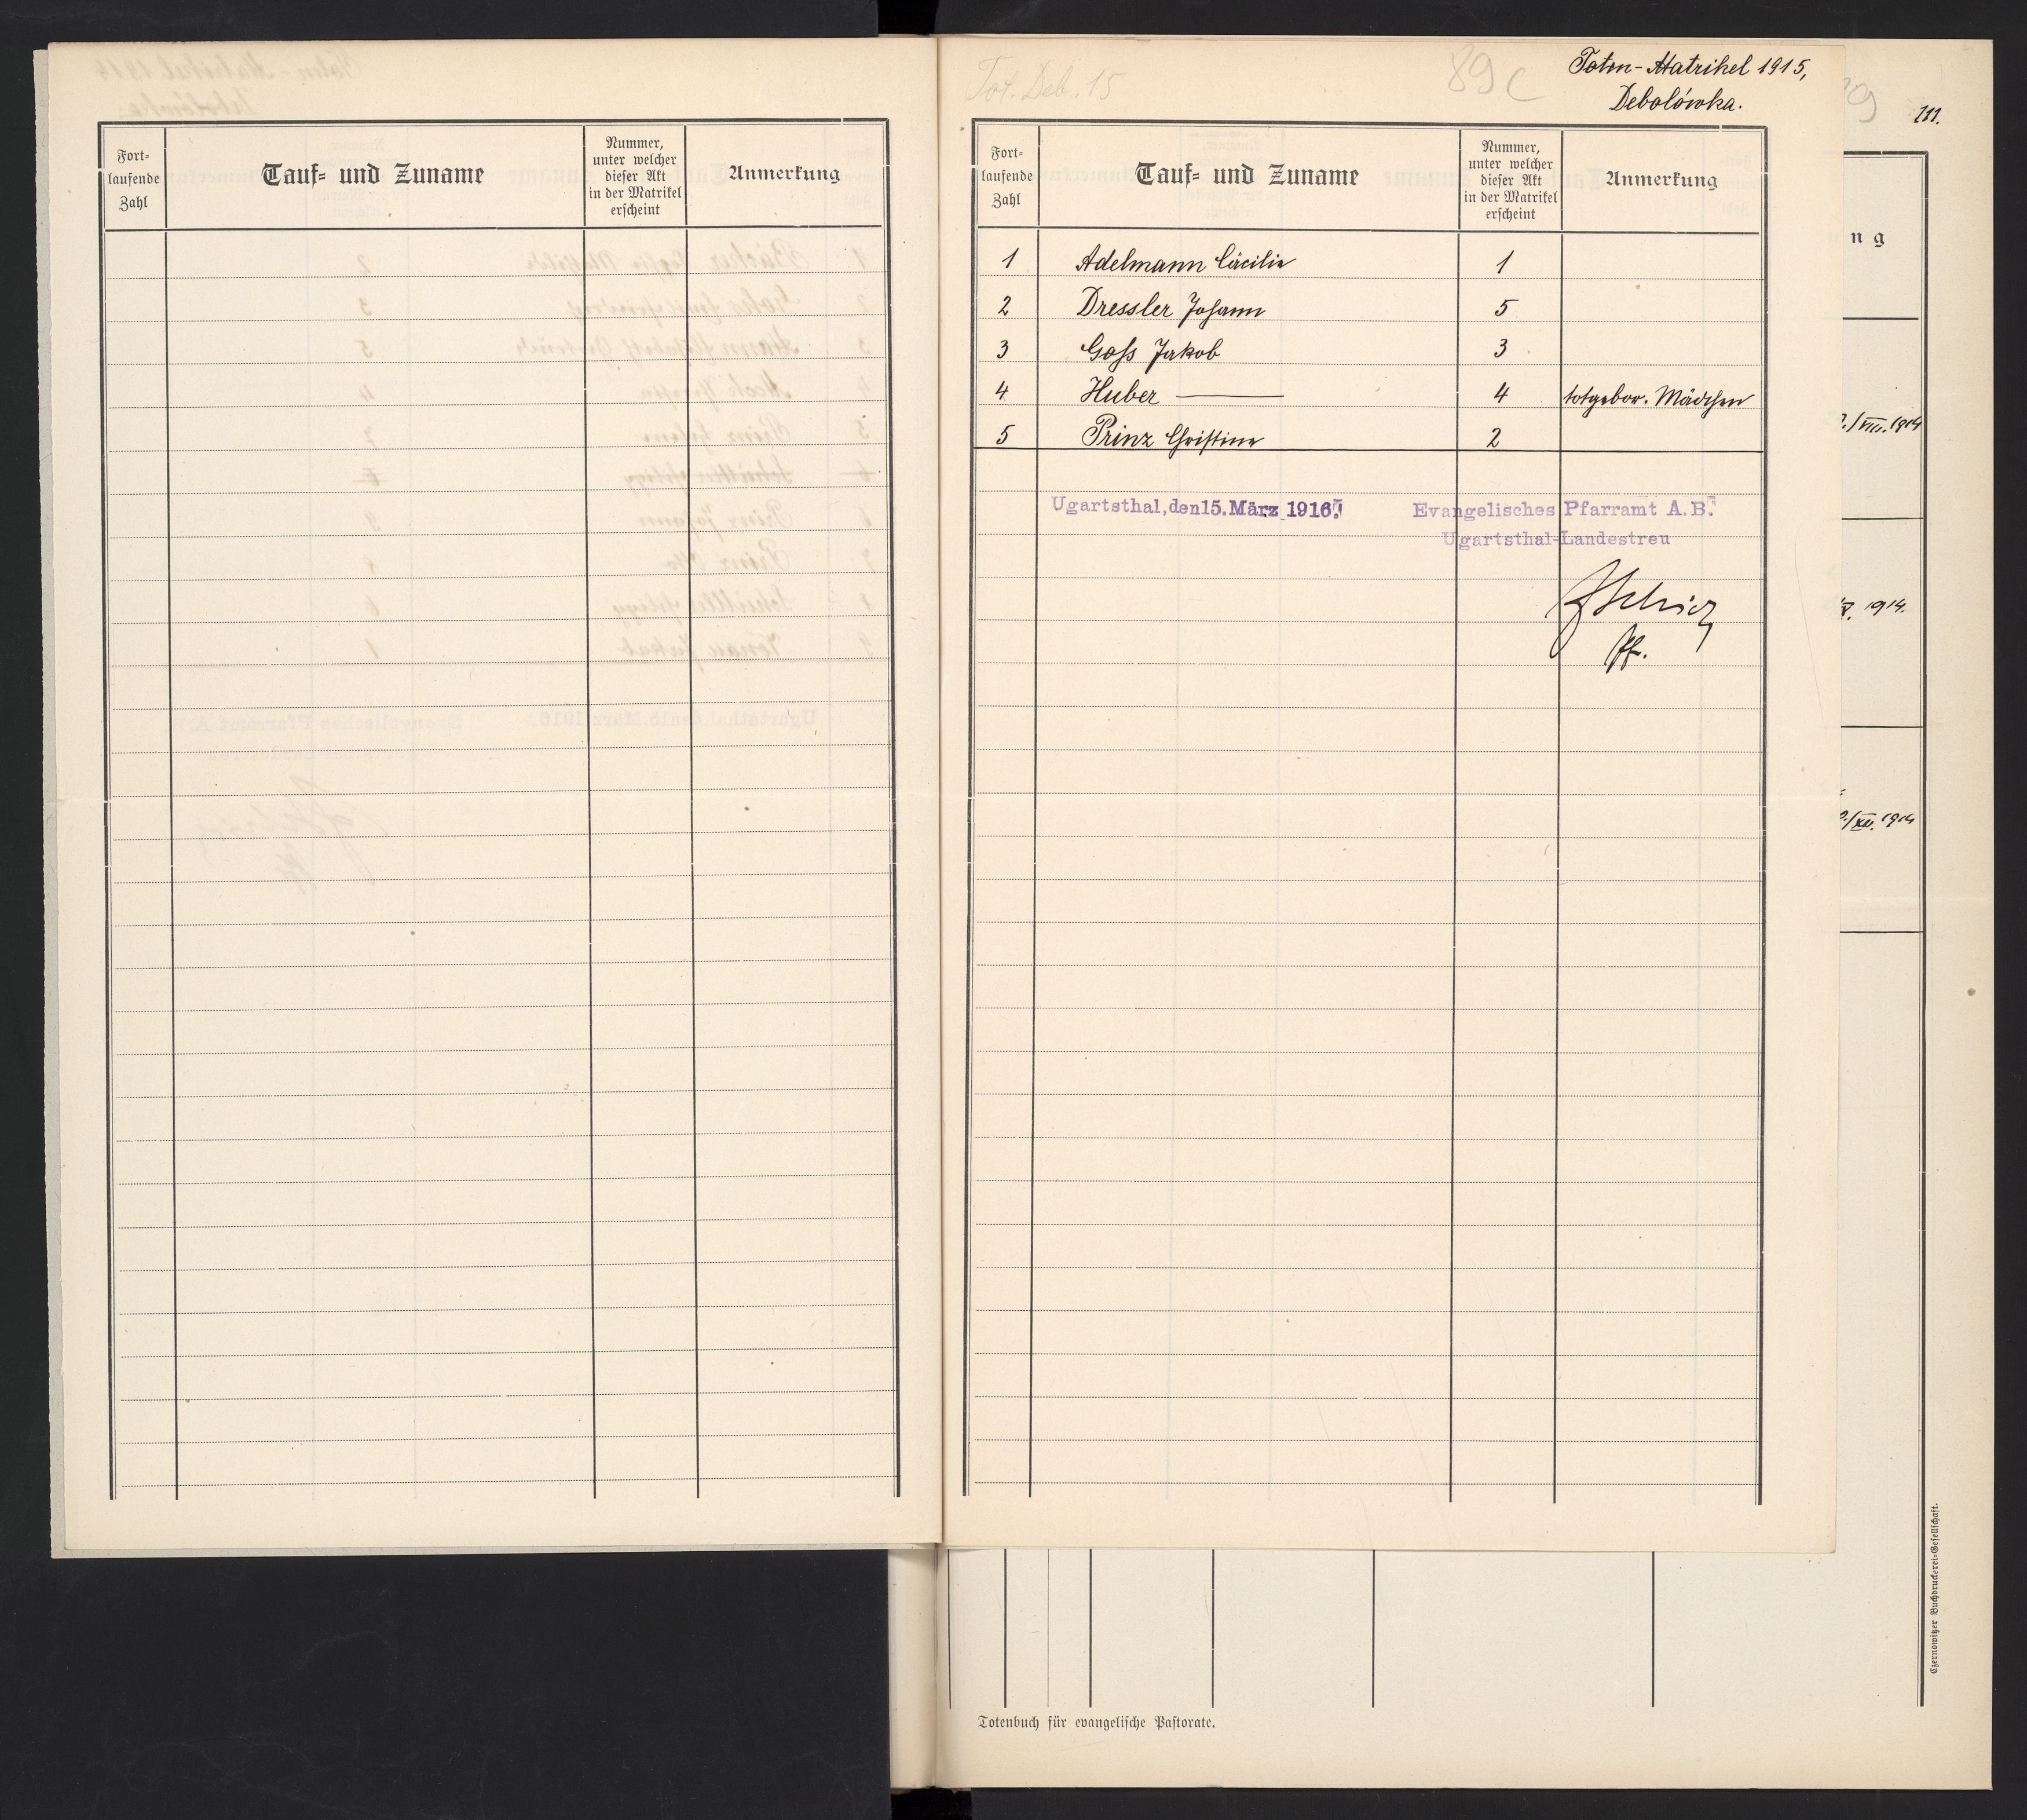 Fort-
laufende
Zahl
Tauf- und Zuname
Nummer,
unter welcher
dieser Akt
in der Matrikel
erscheint
Anmerkung
Tot. Deb. 15
89c
Toten-Matrikel 1915,
Debolówka.
Fort-
laufende
Zahl
Tauf- und Zuname
Nummer,
unter welcher
dieser Akt
in der Matrikel
erscheint
Anmerkung
1 Adelmann Cäcilie 1
2 Dressler Johann 5
3 Goss Jakob 3
4 Huber — 4 totgebor. Mädchen
5 Prinz Christine 2
Ugartsthal, den 15. März 1916.
Evangelisches Pfarramt A. B.
Ugartsthal-Landestreu
Pf.
111.
ng
/VIII. 1914
1914.
/XII. 1914
Czernowitzer Buchdruckerei-Gesellschaft.
Totenbuch für evangelische Pastorate.